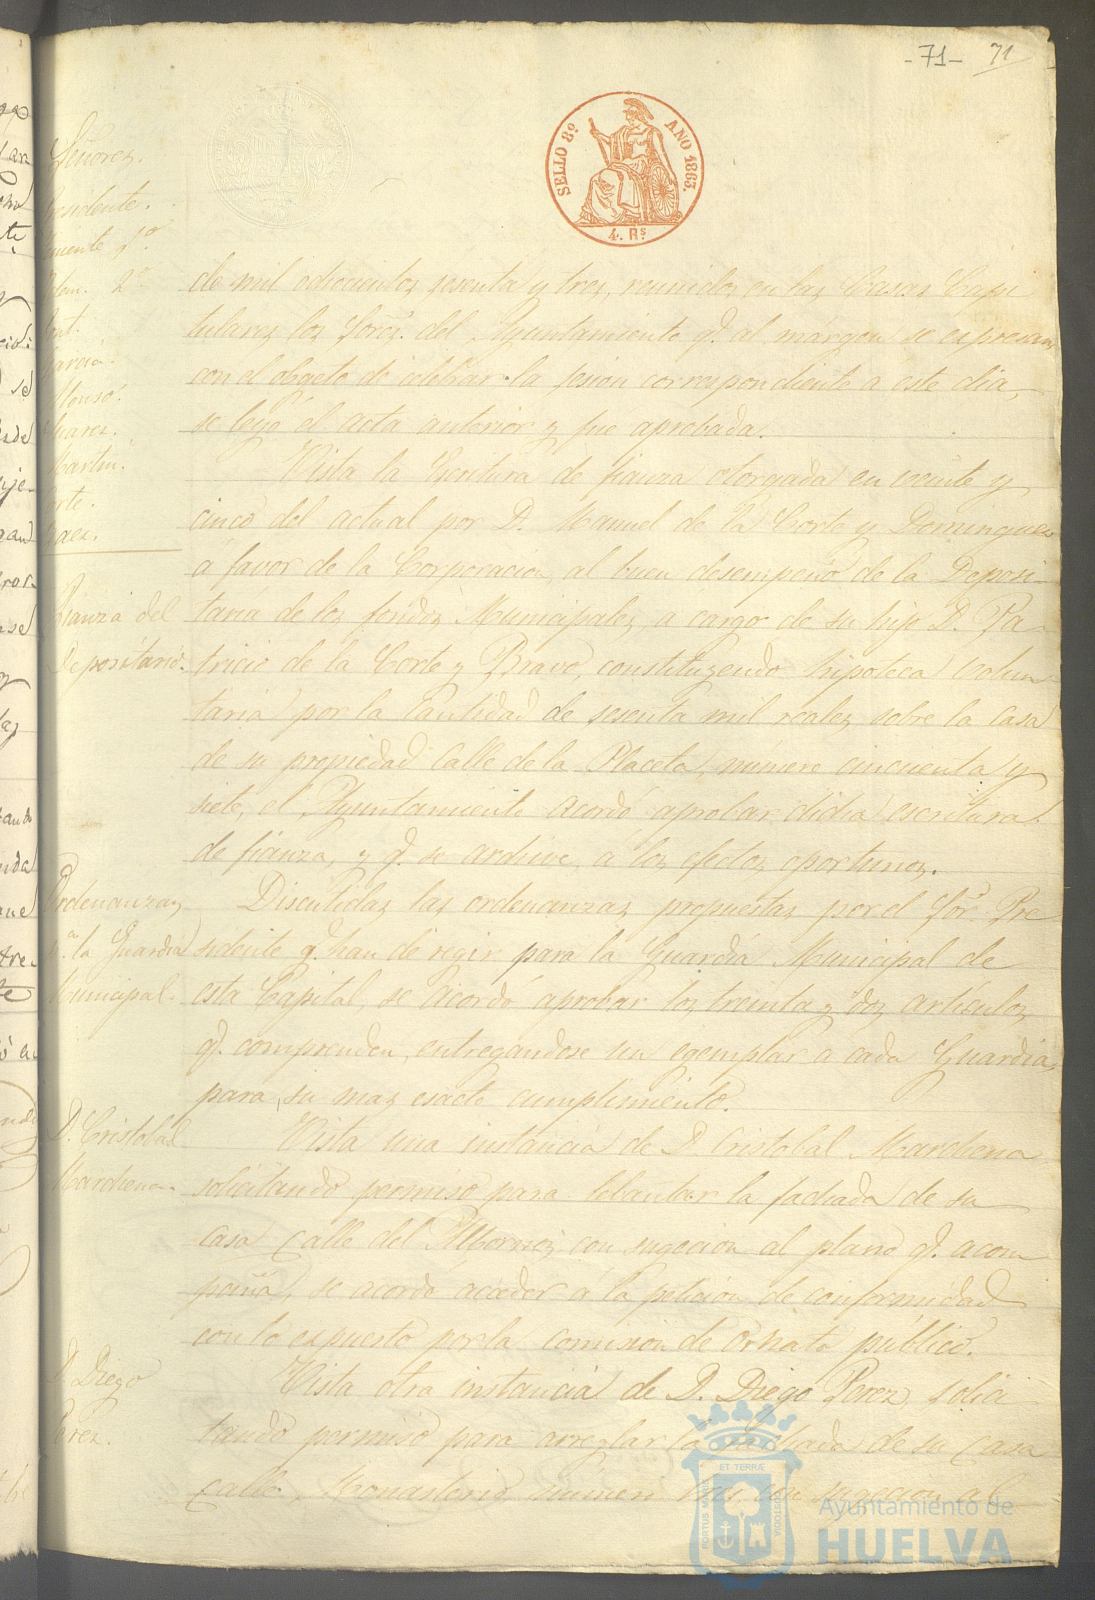 -71- 71
SELLO 8º AÑO 1863.
4. Rs
Señores.
Presidente.
Teniente 1º
Idem. 2º
García
Alfonso.
Suarez.
Martin.
Corte.
de mil ochocientos sesenta y tres, reunidos en las Casas Capi
tulares los Sores. del Ayuntamiento q. al márgen se espresan
con el objeto de celebrar la sesion correspondiente a este dia,
se leyó el acta anterior y fué aprobada.
Fianza del
Depositario.
Vista la Escritura de fianza otorgada en veinte y
cinco del actual por D. Manuel de la Corte y Dominguez
á favor de la Corporacion, al buen desempeño de la Deposi-
taria de los fondos Municipales, a cargo de su hijo D. Pa-
tricio de la Corte y Bravo, constituyendo hipoteca volun
taria por la cantidad de sesenta mil reales sobre la casa
de su propiedad Calle de la Placeta, número cincuenta y
siete, el Ayuntamiento acordó aprobar dicha escritura
de fianza, y q. se archive, á los efectos oportunos.
Ordenanzas
pª la Guardia
Municipal.
Discutidas las ordenanzas propuestas por el Sor. Pre
sidente q. han de regir para la Guardia Municipal de
esta Capital, se acordó aprobar los treinta y dos artículos
q. comprenden, entregandose un egemplar a cada Guardia,
para su mas esacto cumplimiento.
D. Cristobal
Marchena.
Vista una instancia de D. Cristobal Marchena
solicitando permiso para lebantar la fachada de su
casa calle del Albornoz, con sugecion al plano q. acom
paña, se acordó acceder á la peticion de conformidad
con lo espuesto por la comision de ornato público.
D. Diego
Perez.
Vista otra instancia de D. Diego Perez, solici
tando permiso para arreglar la fachada de su casa
calle Monasterio número tres, con sugecion al
PORTUS MARIS ET TERRÆ CUSTODIA
Ayuntamiento de
HUELVA